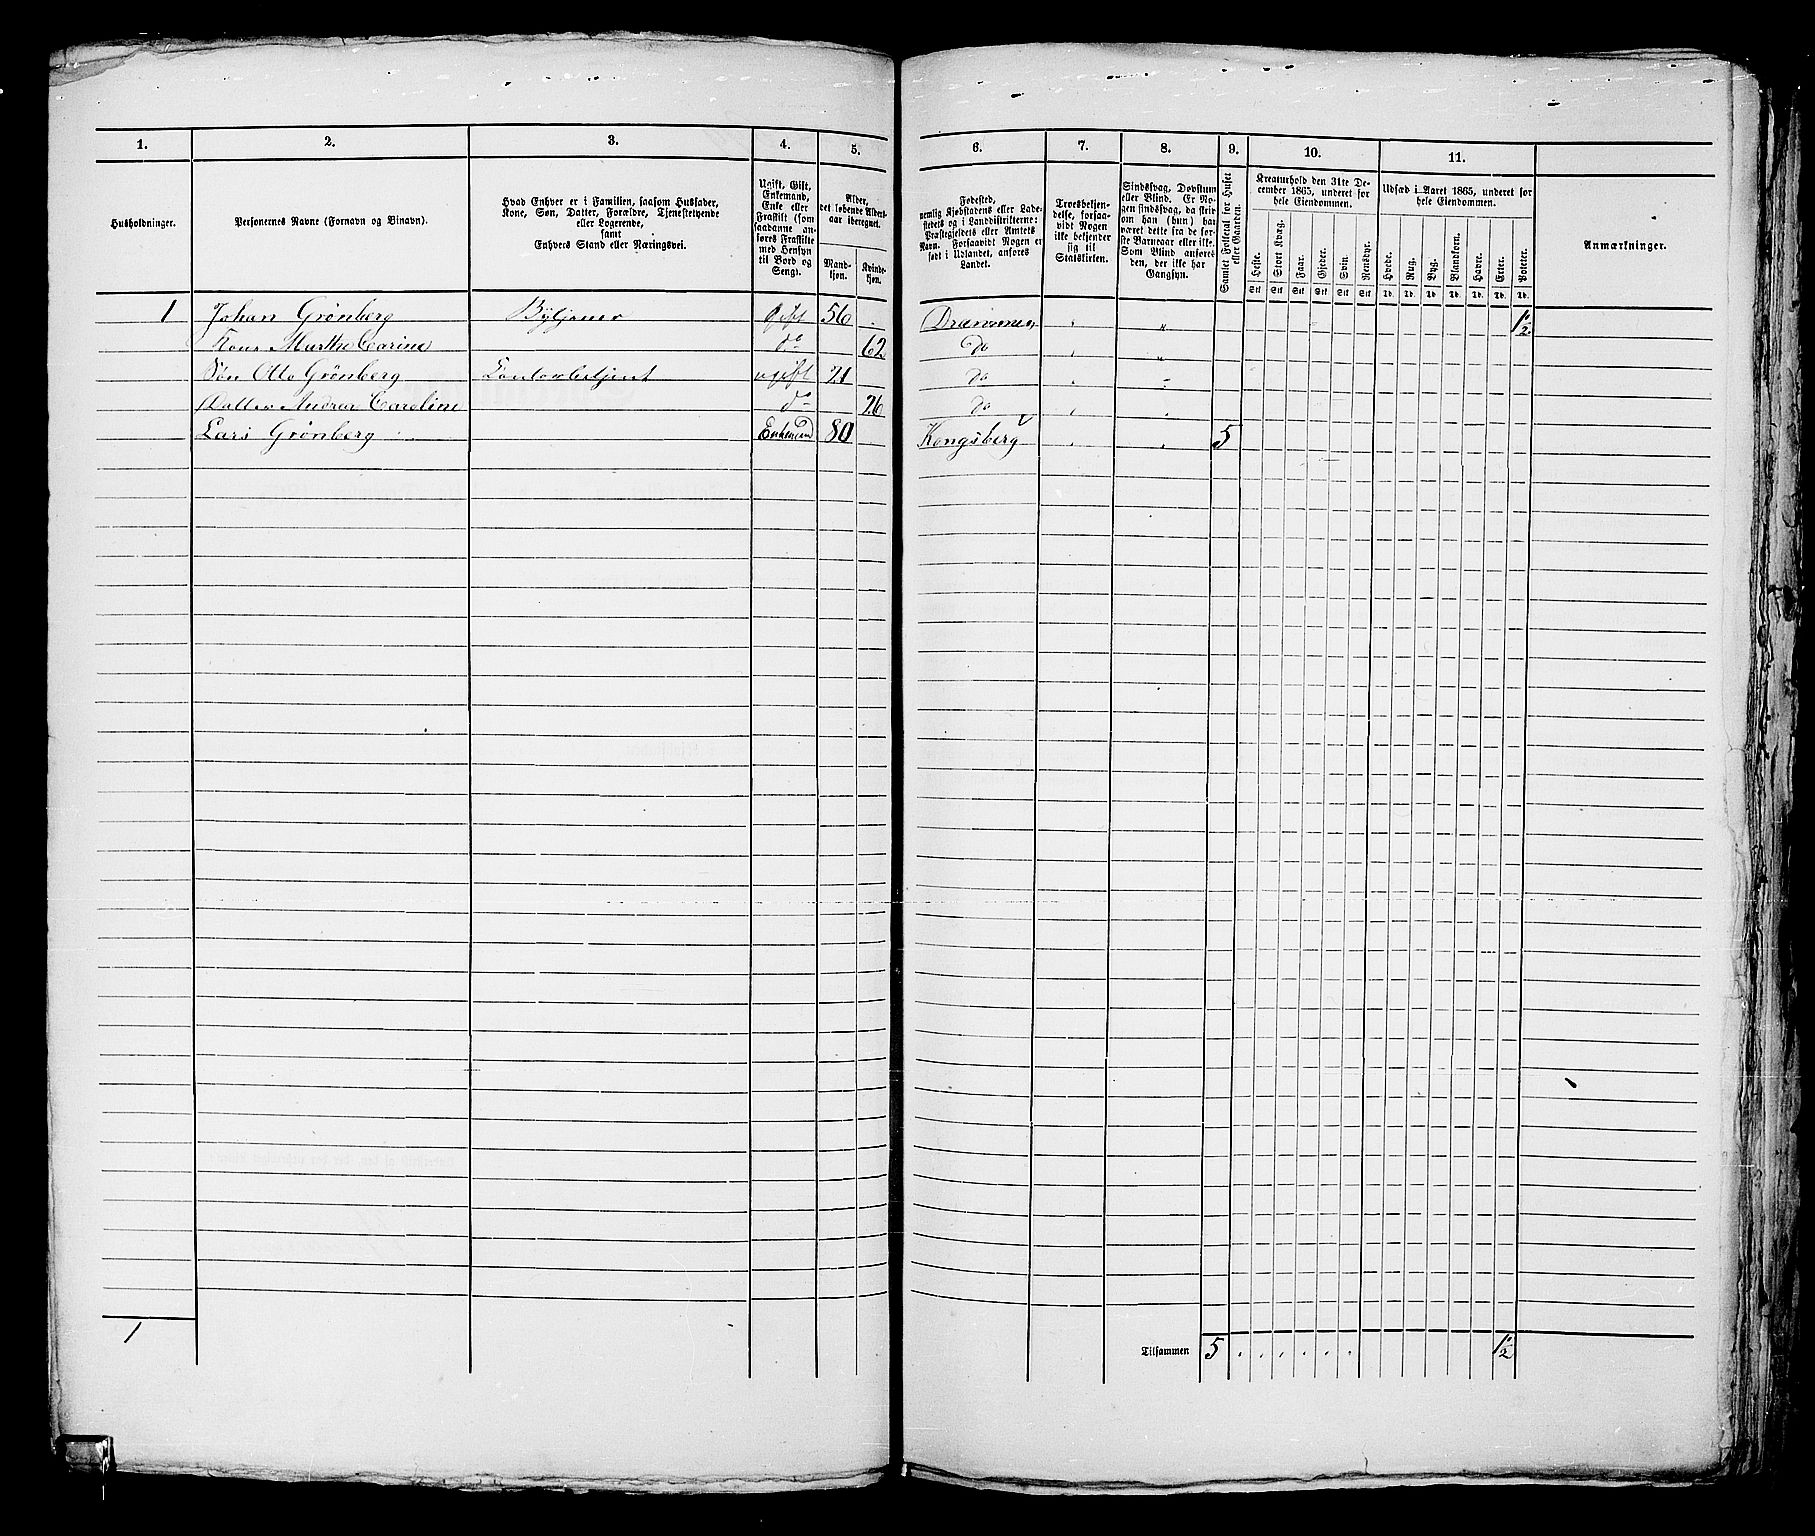 1. 2. 3. 4. 5.
Husholdninger.
Personernes Navne (Fornavn og Binavn).
Hvad Enhver er i Familien, saasom Husfader,
Kone, Søn, Datter, Forældre, Tjenestetyende
eller Logerende,
samt
Enhvers Stand eller Næringsvei.
Ugift, Gift,
Enkemand,
Enke eller
Fraskilt (som
saadanne an-
føres Fraskilte
med Hensyn
til Bord og
Seng).
Alder,
det løbende Alders-
aar iberegnet.
Mand-
kjøn.
Kvinde-
kjøn.
1 Johan Grønberg Bytjener Gift 56
Kone Marthe Carine do 62
Søn Otto Grönberg Contorbetjent ugift 21
Datter Andrea Caroline do 26
Lars Grønberg Enkemand 80
1
6. 7. 8. 9. 10. 11.
Fødested,
nemlig Kjøbstadens eller Lade-
stedets og i Landdistrikterne:
Præstegjeldets eller Amtets
Navn. Forsaavidt Nogen er
født i Udlandet, anføres
Landet.
Troesbekjen-
delse, forsaa-
vidt Nogen
ikke bekjender
sig til
Statskirken.
Sindssvag, Døvstum
eller Blind. Er No-
gen sindssvag, da skriv
om han (hun) har
været dette fra de før-
ste Barneaar eller ikke.
Som Blind anføres
den, der ikke har
Gangsyn.
Samlet Folketal for Huset
eller Gaarden.
Kreaturhold den 31te De-
cember 1865, underet for
hele Eiendommen.
Heste. Stort Kvæg. Faar. Gjeder. Svin. Rensdyr.
Stk Stk Stk Stk Stk Stk
Udsæd i Aaret 1865, underet for
hele Eiendommen.
Hvede. Rug. Byg. Blandkorn. Havre. Erter. Poteter.
Td. Td. Td. Td. Td. Td. Td.
Anmærkninger.
Drammen 1/2
do
do
do
Kongsberg 5
Tilsammen 5 1/2